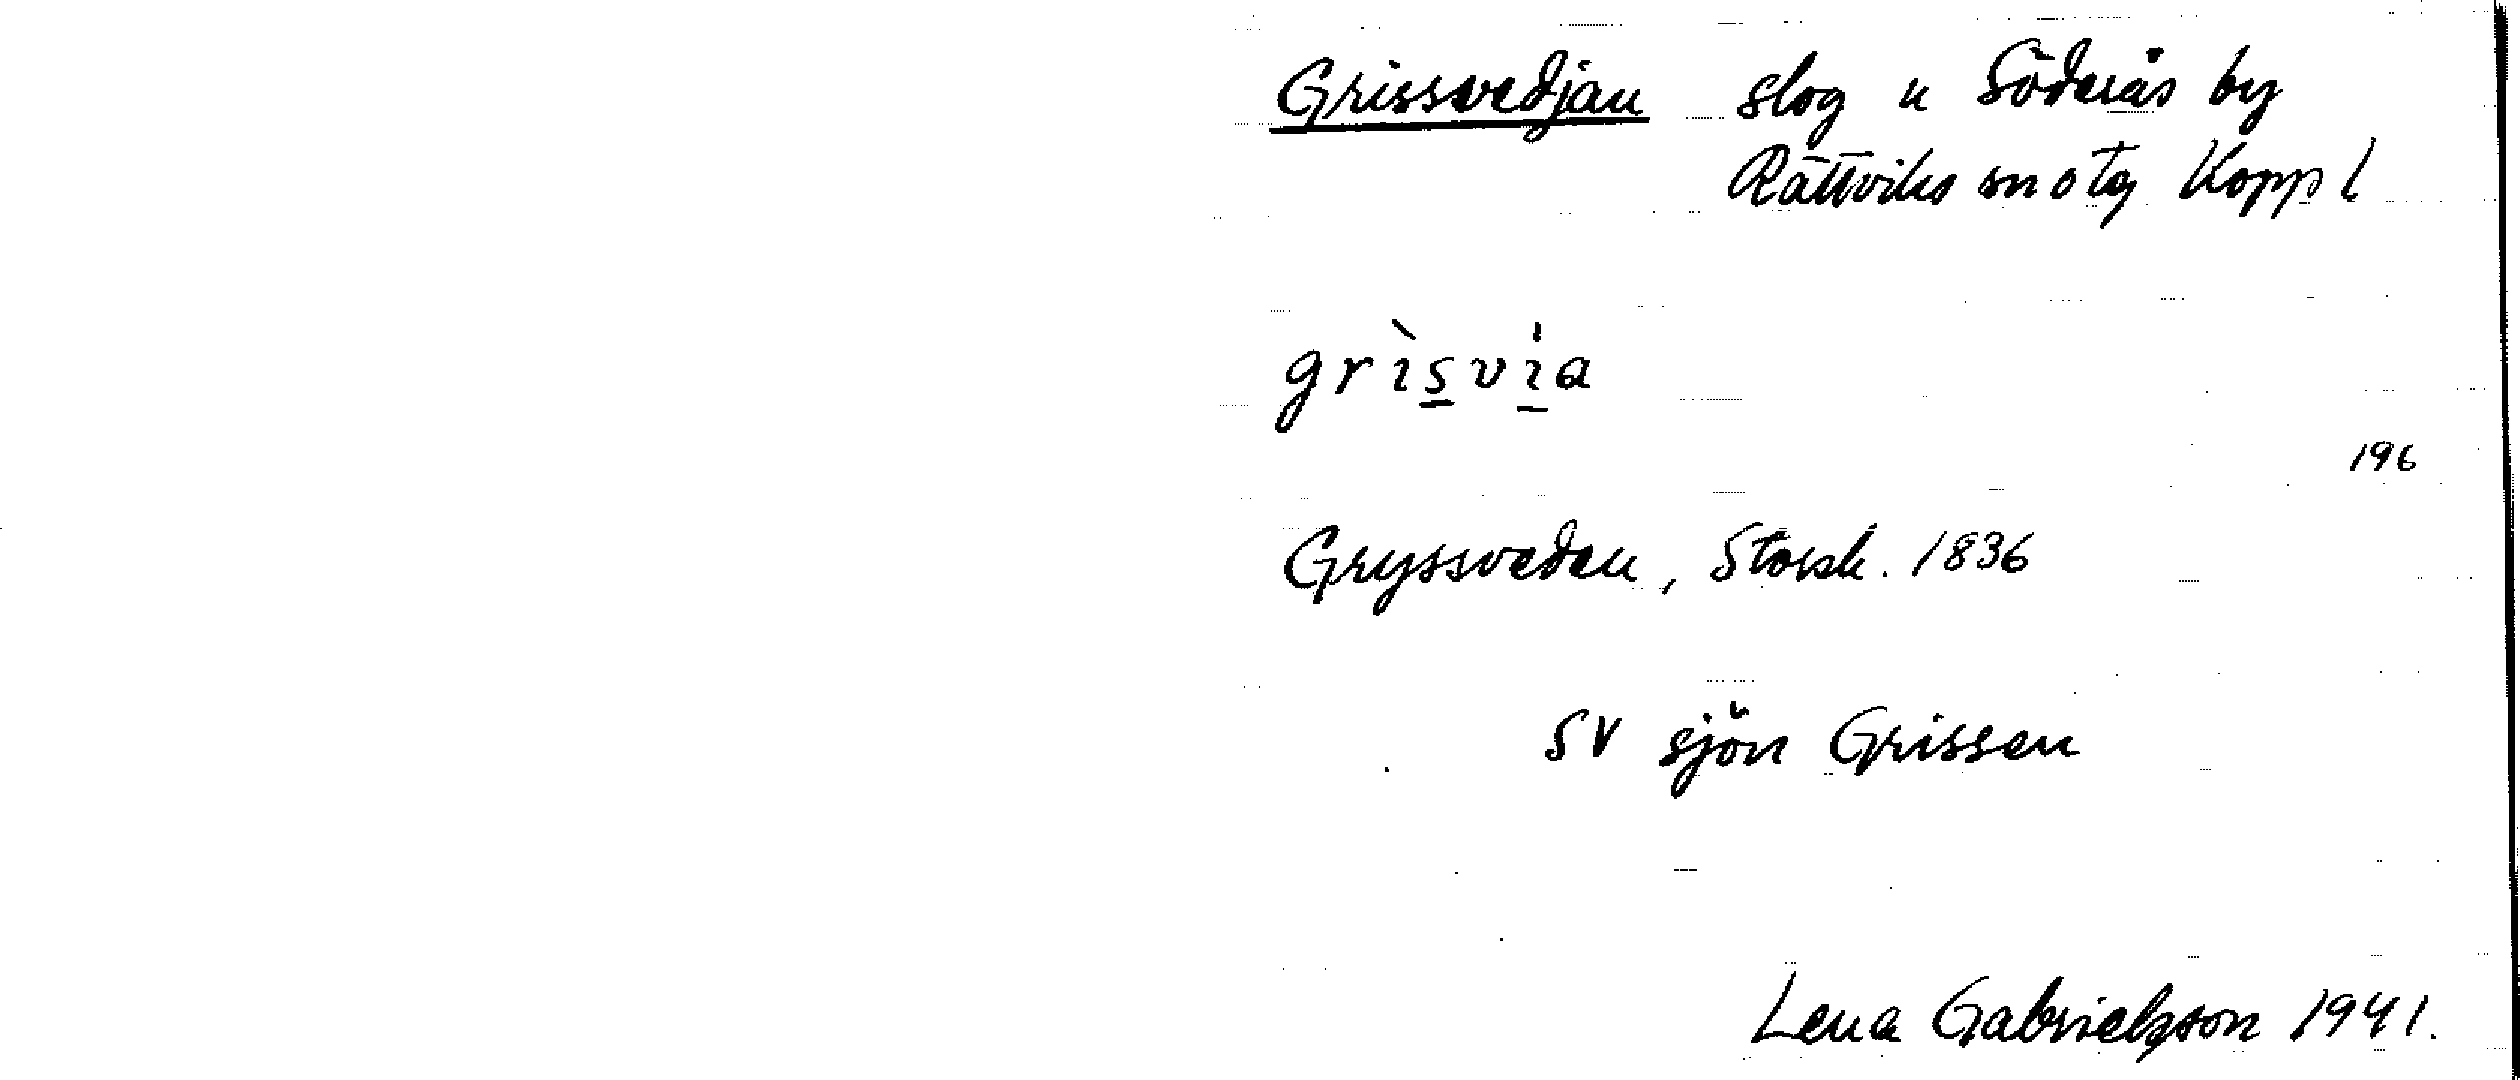 Grissvedjan slog u Söderås by
Rättviks sn o tg Kopp l
grìsvia
196
Gryssveden, Storsk. 1836
SV sjön Grissen
Lena Gabrielsson 1941.